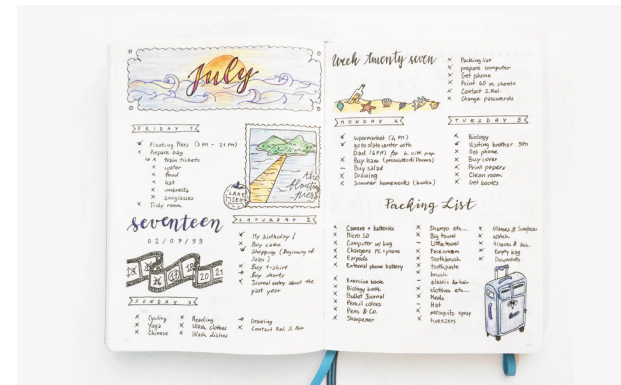 July
FRIDAY 1
Floating Piers (3 PM - 21 PM)
Prepare bag
train tickets
water
food
hat
umbrella
sunglasses
Tidy room
the
floating
piers
LAKE
ISEO
seventeen
02/07/99
17 18 20 21
SATURDAY 2
My birthday!
Buy cake
Shopping (Beginning of
Sales)
Buy t-shirt
Buy shorts
Journal entry about the
past year
SUNDAY 3
Cycling
Yoga
Chinese
Reading
Wash clothes
Wash dishes
Drawing
Contact
Week twenty seven
Packing list
prepare computer
Get phone
Print
Contact
Change passwords
MONDAY 4
supermarket (4 PM)
go to date center with
Dad (6 PM) for
Buy ham
Buy salad
Drawing
Summer homeworks (books)
TUESDAY 5
Biology
Visiting brother 5PM
Get phone
Buy cover
Print papers
Clean room
Get books
Packing List
Camera + batteries
Micro SD
Computer w/ bag
Chargers PC + phone
Earpods
External phone battery
Exercise book
Biology book
Bullet Journal
Pencil colors
Pens & Co.
Sharpener
Shampo etc...
Big towel
Little towel
Face cream
Toothbrush
toothpaste
brush
elastic & hair
clothes etc...
Meds
Hat
mosquito spray
tweezers
Glasses & Sunglasses
watch
Empty bag
Documents